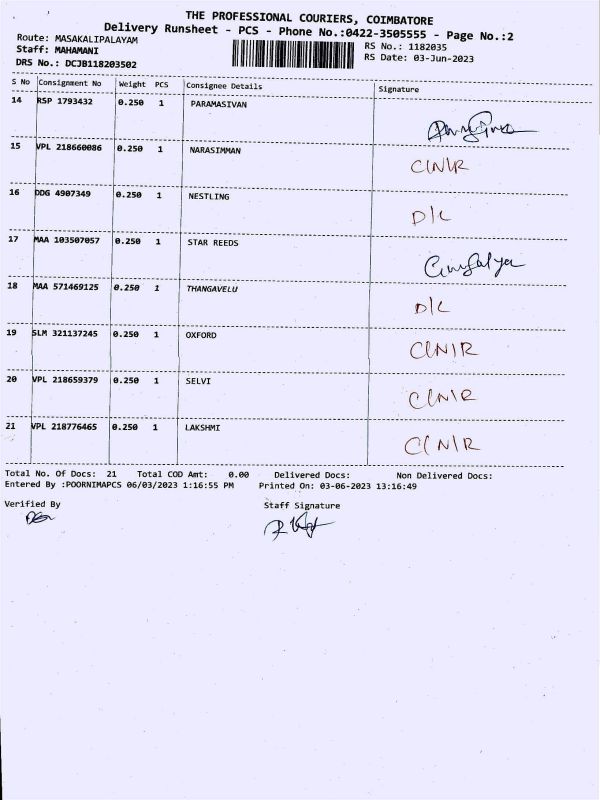 THE PROFESSIONAL COURIERS, COIMBATORE
Delivery Runsheet - PCS - Phone No.:0422-3505555 - Page No.:2
Route: MASAKALIPALAYAM
Staff: MAHAMANI
DRS No.: DCJB118203502
RS No.: 1182035
RS Date: 03-Jun-2023
S No Consignment No Weight PCS Consignee Details Signature
14 RSP 1793432 0.250 1 PARAMASIVAN
15 VPL 218660086 0.250 1 NARASIMMAN C\N\R
16 DDG 4907349 0.250 1 NESTLING D/L
17 MAA 103507057 0.250 1 STAR REEDS
18 MAA 571469125 0.250 1 THANGAVELU D/L
19 SLM 321137245 0.250 1 OXFORD C\N\R
20 VPL 218659379 0.250 1 SELVI C\N\R
21 VPL 218776465 0.250 1 LAKSHMI C\N\R
Total No. Of Docs: 21 Total COD Amt: 0.00 Delivered Docs: Non Delivered Docs:
Entered By :POORNIMAPCS 06/03/2023 1:16:55 PM Printed On: 03-06-2023 13:16:49
Verified By Staff Signature